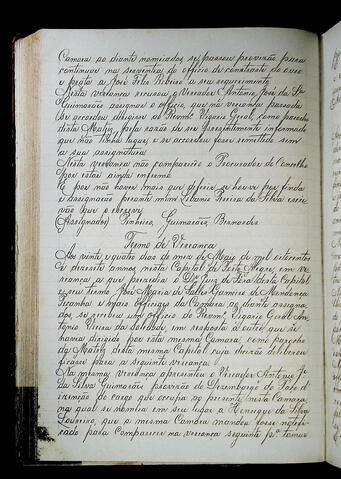 Camara ao diante nomeiados se passou provisão para
continuar na serventia do officio de contraste de ouro
e prata a José Felis Ribeiro a seu requerimento
Nesta vereança recusou o Vereador Antonio José da Sª
Guimarães assignar o officio, que na vereança passada
se accordou dirigir ao Revmº Vigario Geral, como parocho
desta Matriz, pela razão de ser presentemente informado
que não tinha lugar, e se accordou fosse remettido sem
a sua assignatura
Nesta vereança não compareceo o Procurador do Concelho
por estar ainda infermo
E por não haver mais que diferir se houve por finda
e assignarão perante mim Silverio Pereira da Silva escri
vão que o escrevy
(Assignados) Pinheiro, Guimarães, Bernardes
Termo de Vereança
Aos vinte e quatro dias do mez de Maio de mil oitocentos
e dezesete annos nesta Capital de Porto Alegre, em ve
reança a que prezedio o Dºr Juiz de Fora desta Capital
e seu termo José Maria de Salles Gameiro de Mendonça
Peçanha e mais officiaes da Camara ao diante assigna
dos, se recebeu um officio do Revmº Vigario Geral An
tonio Vieira da Soledade, em resposta a outro que se
havia dirigido por esta mesma Camara, como parocho
da Matriz desta mesma Capital cuja decisão deliberou
ficasse para a seguinte vereança
Na mesma vereança apresentou o Vereador Antonio Jº
da Silva Guimarães provisão do Dezembargo do Paço d
izenção do cargo que occupa ao prezente nesta Camara,
na qual se nomeia em seu lugar a Henrique da Silva
Loureiro, que a mesma Camara mandou fosse notifi
cado para comparecer na vereança seguinte pª tomar